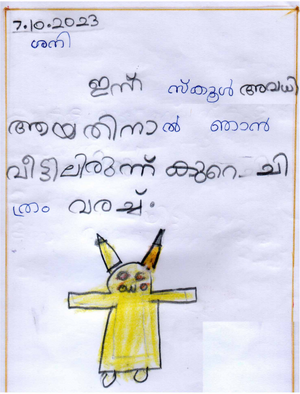 7.10.2023
ശനി
ഇന്ന് സ്കൂൾ അവധി
ആയതിനാൽ ഞാൻ
വീട്ടിലിരുന്ന് കുറെ ചി
ത്രം വരച്ച്.